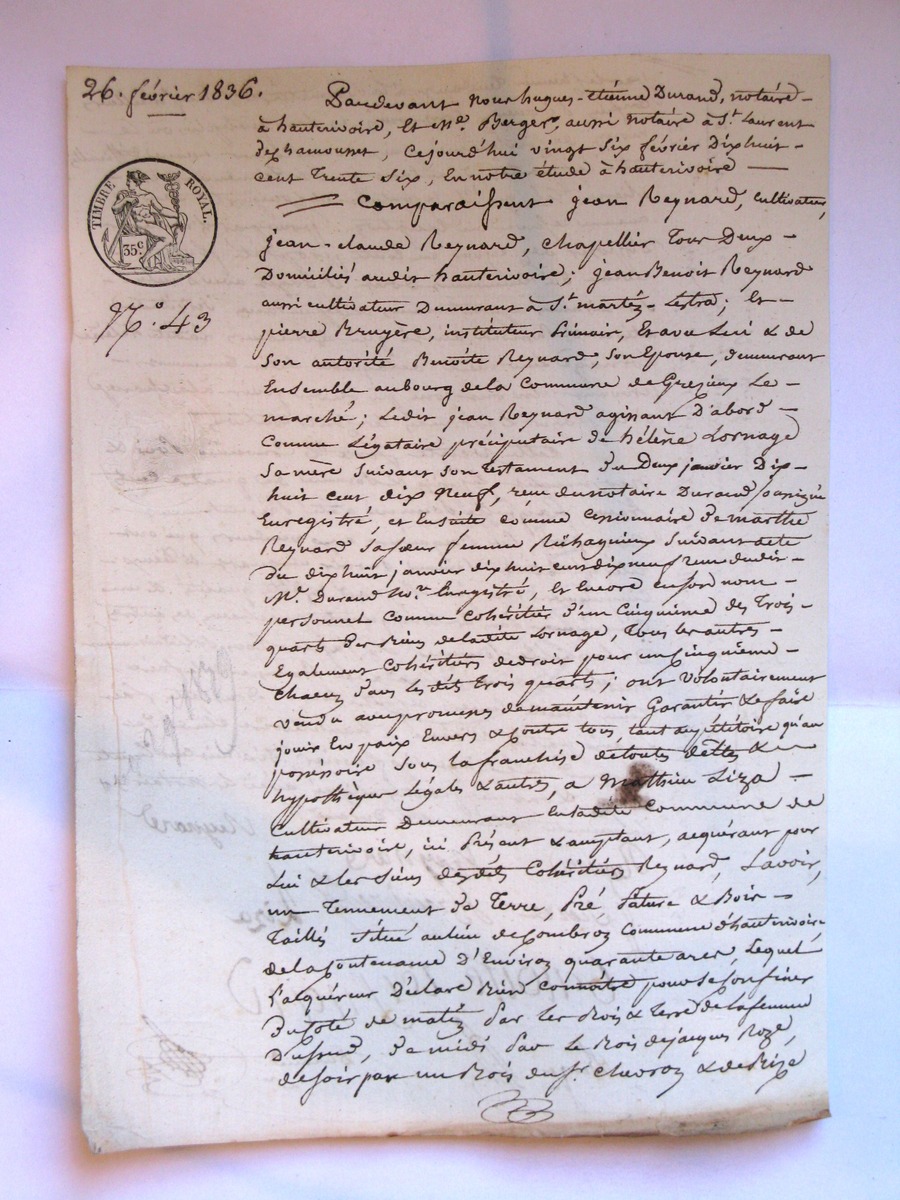 26. février 1836.
TIMBRE ROYAL.
35c.
N.o 43
Pardevant nous hugues-étienne Durand, notaire
à hauterivoire, et Me. Berger, aussi notaire à St. Laurent
de chamousset, cejourd'hui vingt six février dix huit
cent trente six, en notre étude à hauterivoire
Comparaissent jean Reynard, cultivateur,
jean-claude Reynard, chapellier tous deux
Domiciliés audit hauterivoire; jean Benoit Reynard
aussi cultivateur Demeurant à St. martin-Lestra; Et
pierre Bruyère, instituteur primaire, Et avec lui & de
son autorité Benoite Reynard, son Epouse, demeurant
Ensemble au bourg de la Commune de Grezieux Le
marché; Ledit jean Reynard agissant D'abord
Comme Légataire préciputaire de hélène Lornage
sa mère suivant son testament du Deux janvier Dix
huit cent dix neuf, reçu du notaire Durand soussigné
Enregistré, et Ensuite comme Cessionnaire de marthe
Reynard sa sœur femme suivant acte
du dix huit janvier dix huit cent dix neuf reçu dudit
Me. Durand no.re Enregistré, et Encore en son nom
personnel comme cohéritier d'un Cinquième des trois
quarts des Biens de ladite Lornage, tous les autres
Egalement Cohéritiers de droit pour un cinquième
chacun dans lesdits trois quarts; ont volontairement
vendu avec promesses de maintenir Garantir & faire
jouir En paix Envers & contre tous, tant au pétitoire qu'au
possessoire sous la franchise de toutes dettes &
hypothèques Légales & autres, a Mathieu Liza
Cultivateur Demeurant En ladite Commune de
hauterivoire, ici Présent & acceptant, acquérant pour
Lui & les Siens desdits Cohéritiers Reynard, Savoir,
un Tennement de Terre, Pré Pature & Bois
Taillis situé au lieu de Combroz Commune d'hauterivoire
de la Contenance d'Environ quarante ares, Lequel
L'acquéreur Déclare Bien connaitre pour se Confiner
Du coté de matin Par les Bois & Terre de la femme
, de midi Par le Bois de jacques Roze,
de soir par un Bois du Sr. & de Bize